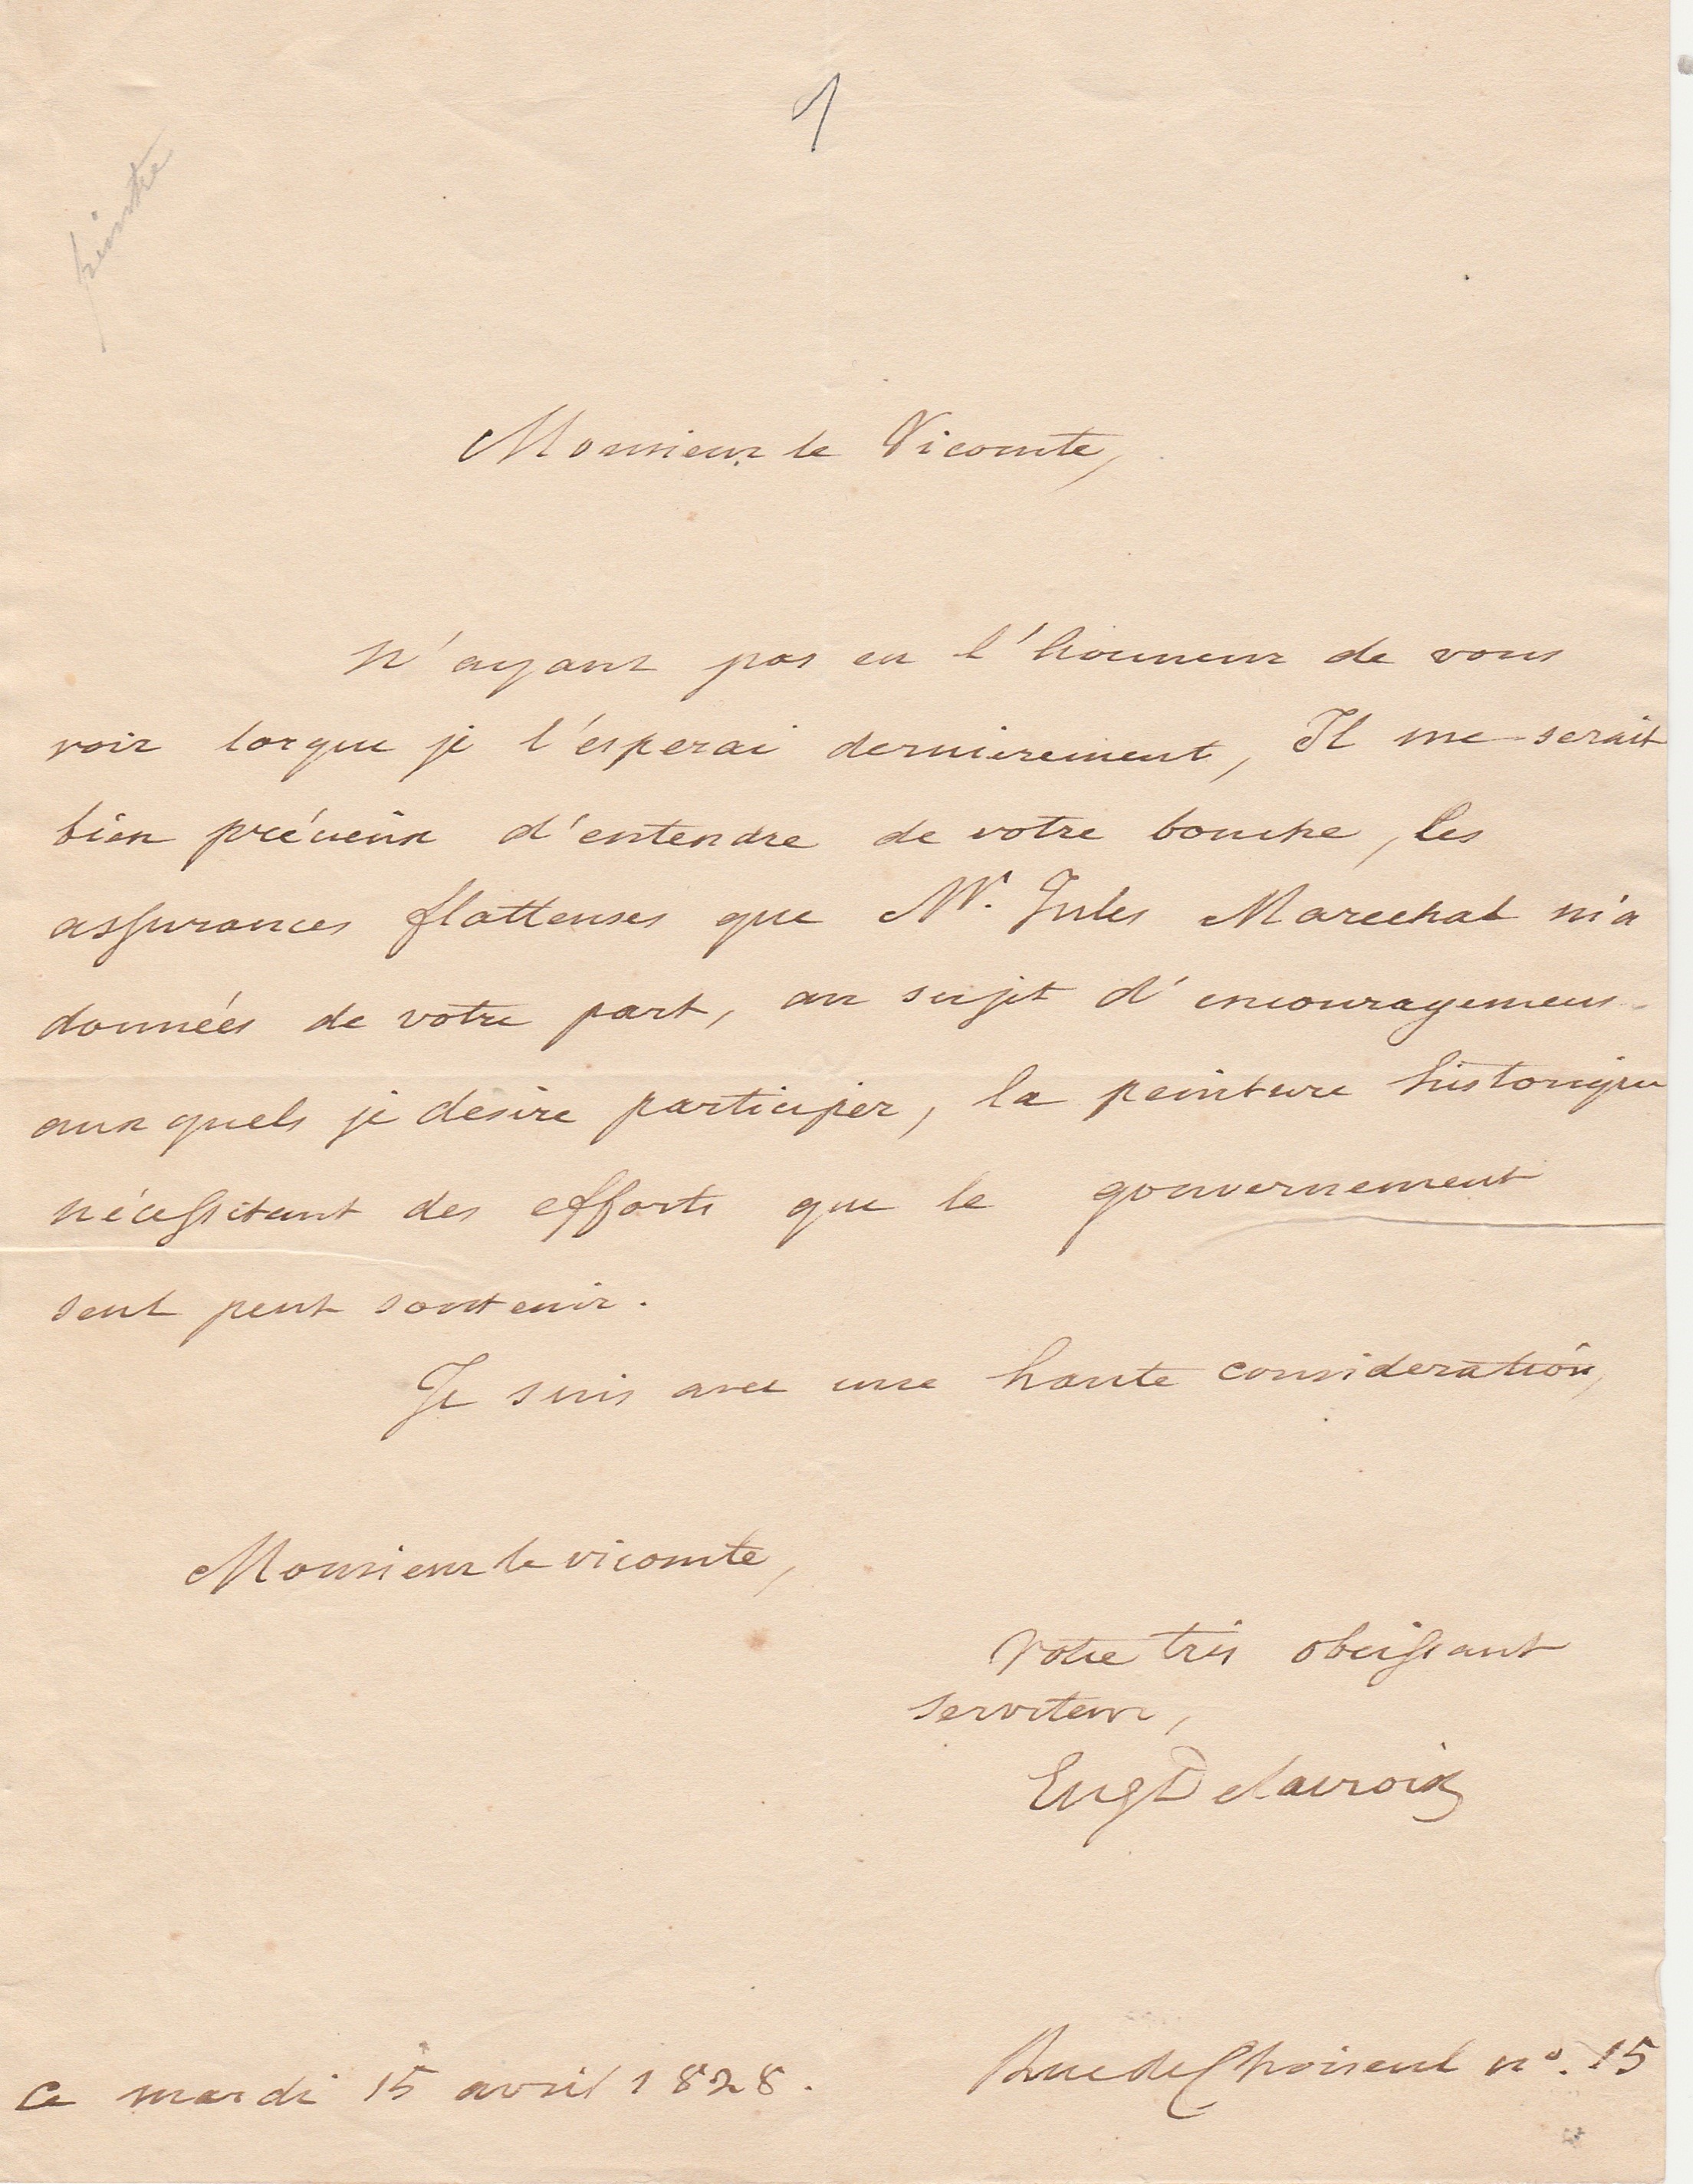 1
peintre
Monsieur le Vicomte,
N'ayant pas eu l'honneur de vous
voir lorque je l'ésperai dernierement, Il me serait
bien précieux d'entendre de votre bouche, les
assurances flatteuses que Mr. Jules Marechal m'a
données de votre part, au sujet d'encouragemens
aux quels je desire participer, la peinture historique
nécessitant des efforts que le gouvernement
seul peut soutenir.
Je suis avec une haute consideration,
Monsieur le vicomte,
Votre très obeissant
serviteur,
Eug Delacroix
Ce mardi 15 avril 1828.
Rue de Choiseul n°. 15